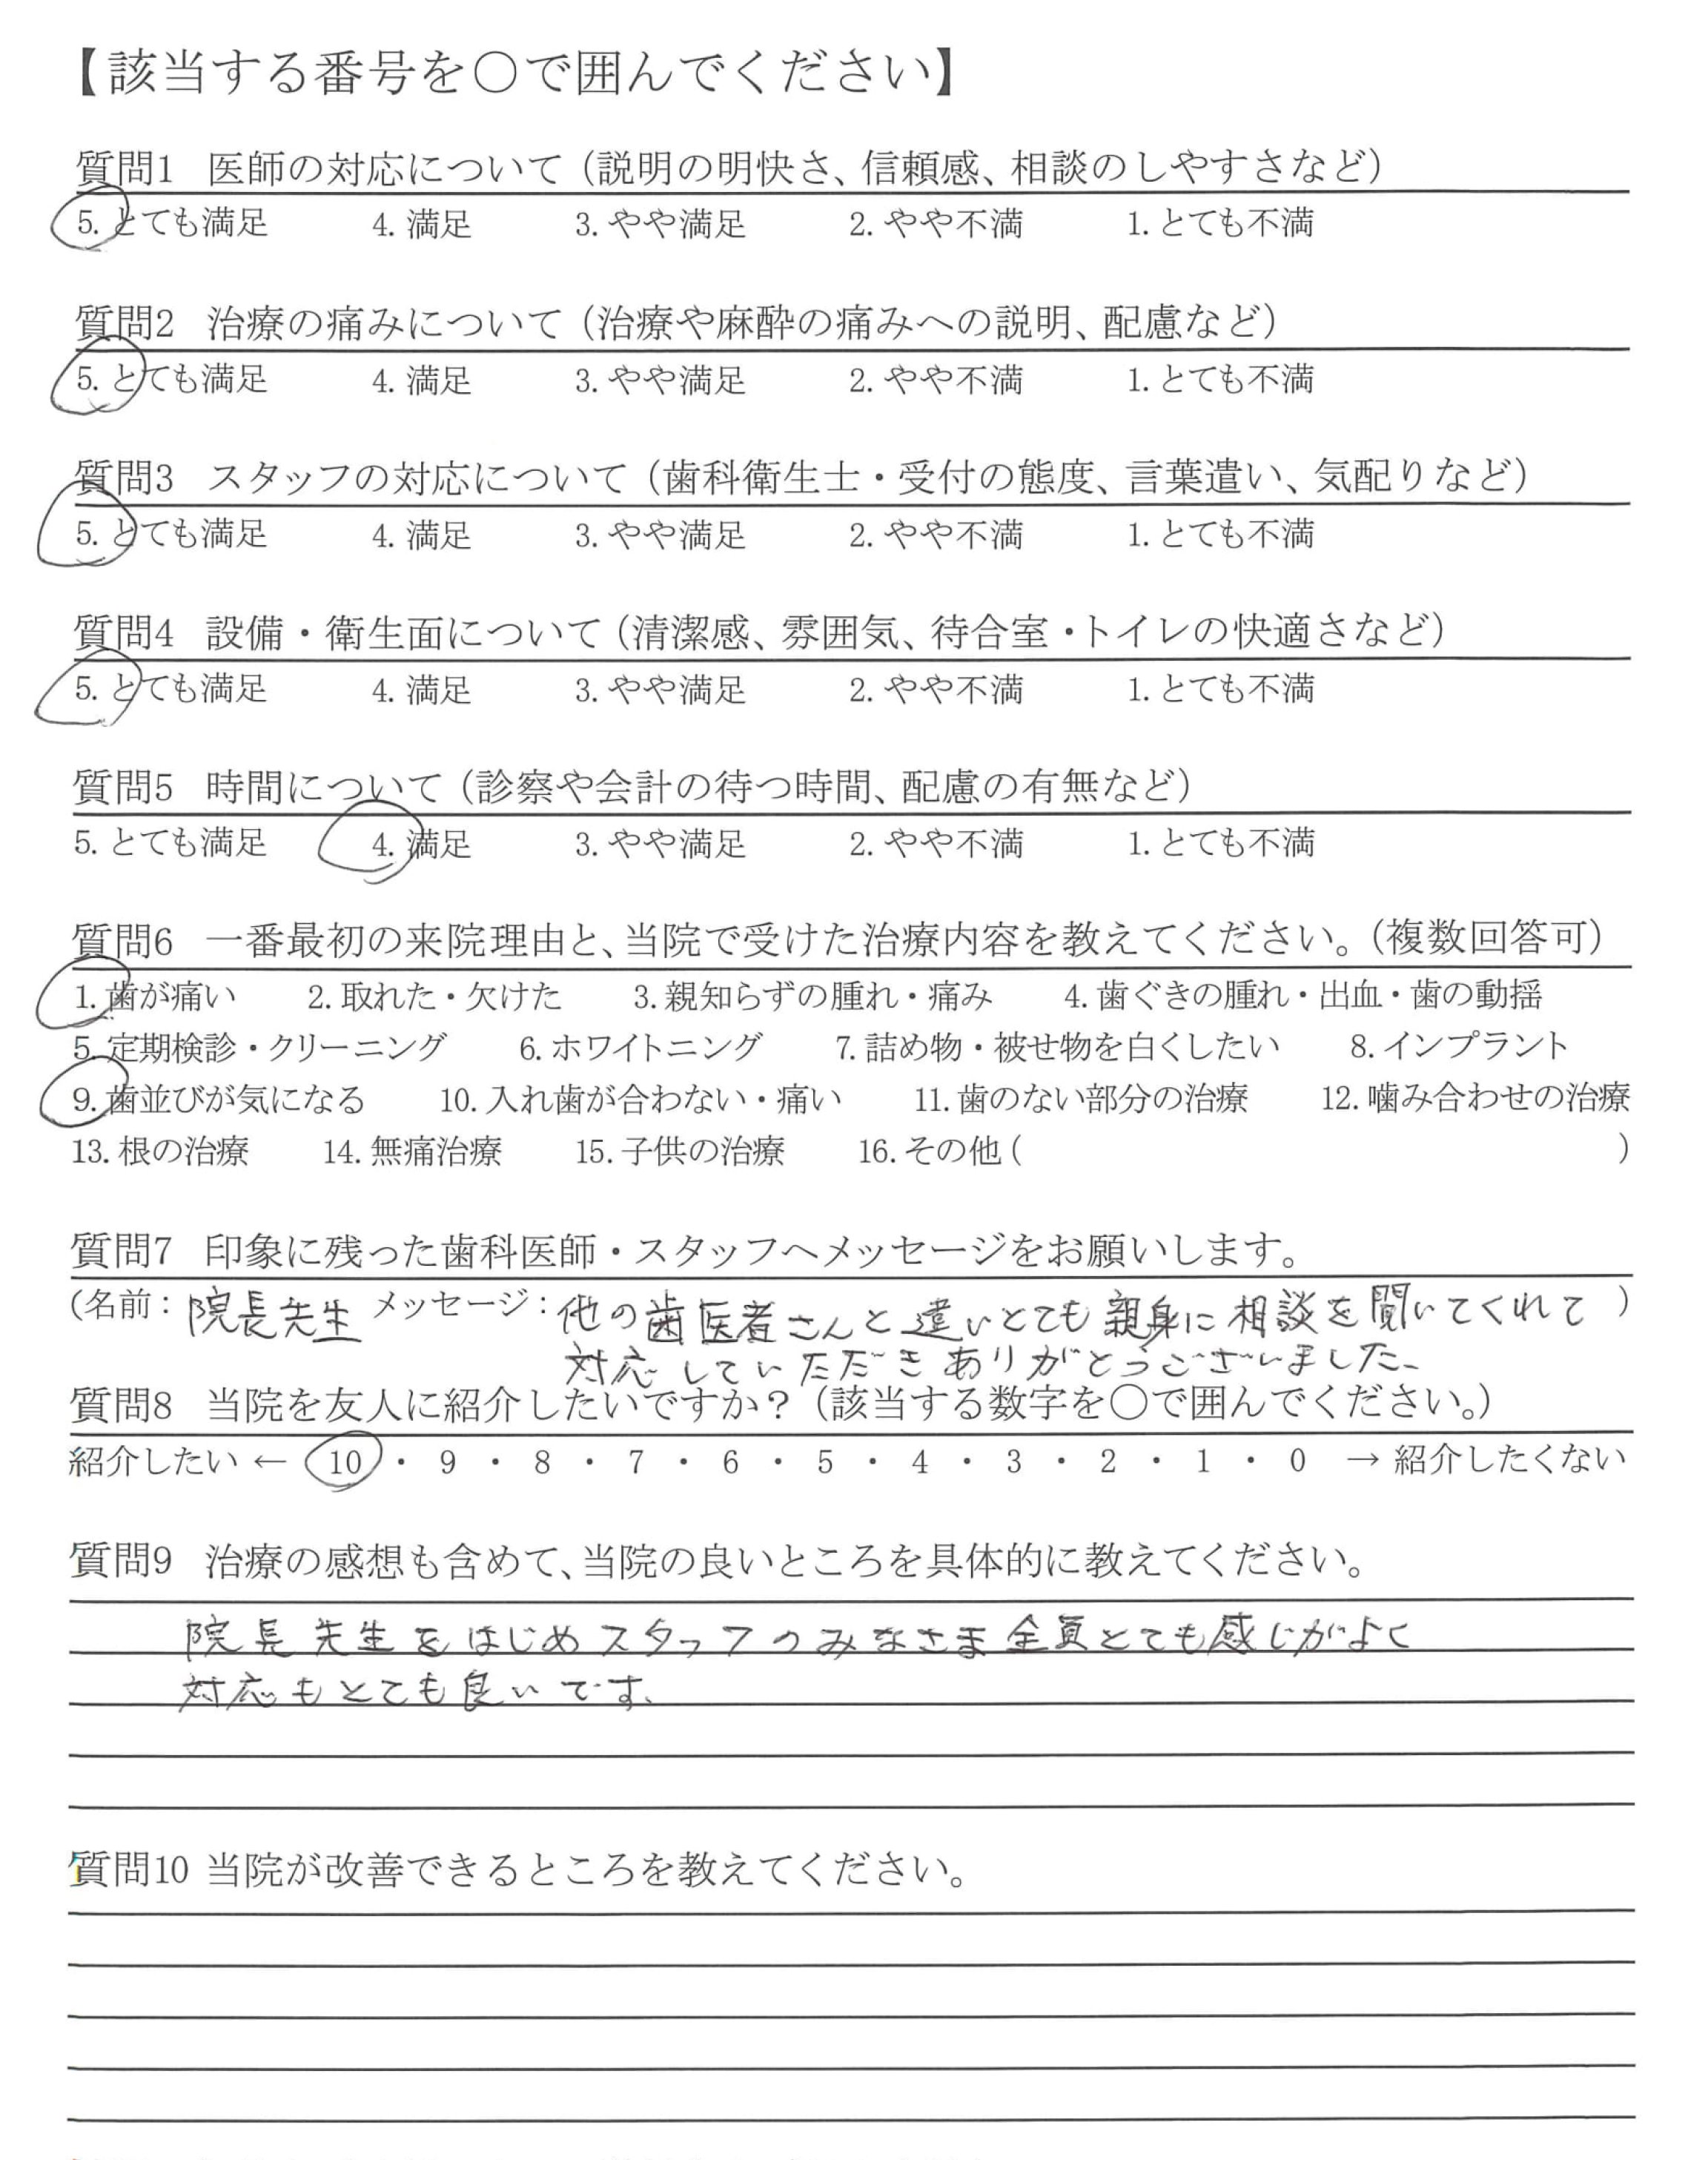 【該当する番号を〇で囲んでください】
質問1 医師の対応について（説明の明快さ、信頼感、相談のしやすさなど）
5. とても満足 4. 満足 3. やや満足 2. やや不満 1. とても不満
質問2 治療の痛みについて（治療や麻酔の痛みへの説明、配慮など）
5. とても満足 4. 満足 3. やや満足 2. やや不満 1. とても不満
質問3 スタッフの対応について（歯科衛生士・受付の態度、言葉遣い、気配りなど）
5. とても満足 4. 満足 3. やや満足 2. やや不満 1. とても不満
質問4 設備・衛生面について（清潔感、雰囲気、待合室・トイレの快適さなど）
5. とても満足 4. 満足 3. やや満足 2. やや不満 1. とても不満
質問5 時間について（診察や会計の待つ時間、配慮の有無など）
5. とても満足 4. 満足 3. やや満足 2. やや不満 1. とても不満
質問6 一番最初の来院理由と、当院で受けた治療内容を教えてください。（複数回答可）
1. 歯が痛い 2. 取れた・欠けた 3. 親知らずの腫れ・痛み 4. 歯ぐきの腫れ・出血・歯の動揺
5. 定期検診・クリーニング 6. ホワイトニング 7. 詰め物・被せ物を白くしたい 8. インプラント
9. 歯並びが気になる 10. 入れ歯が合わない・痛い 11. 歯のない部分の治療 12. 噛み合わせの治療
13. 根の治療 14. 無痛治療 15. 子供の治療 16. その他（ ）
質問7 印象に残った歯科医師・スタッフへメッセージをお願いします。
（名前：院長先生 メッセージ：他の歯医者さんと違いとても親身に相談を聞いてくれて ）
対応していただきありがとうございました。
質問8 当院を友人に紹介したいですか？（該当する数字を〇で囲んでください。）
紹介したい ← 10 ・ 9 ・ 8 ・ 7 ・ 6 ・ 5 ・ 4 ・ 3 ・ 2 ・ 1 ・ 0 → 紹介したくない
質問9 治療の感想も含めて、当院の良いところを具体的に教えてください。
院長先生をはじめスタッフのみなさま全員とても感じがよく
対応もとても良いです。
質問10 当院が改善できるところを教えてください。